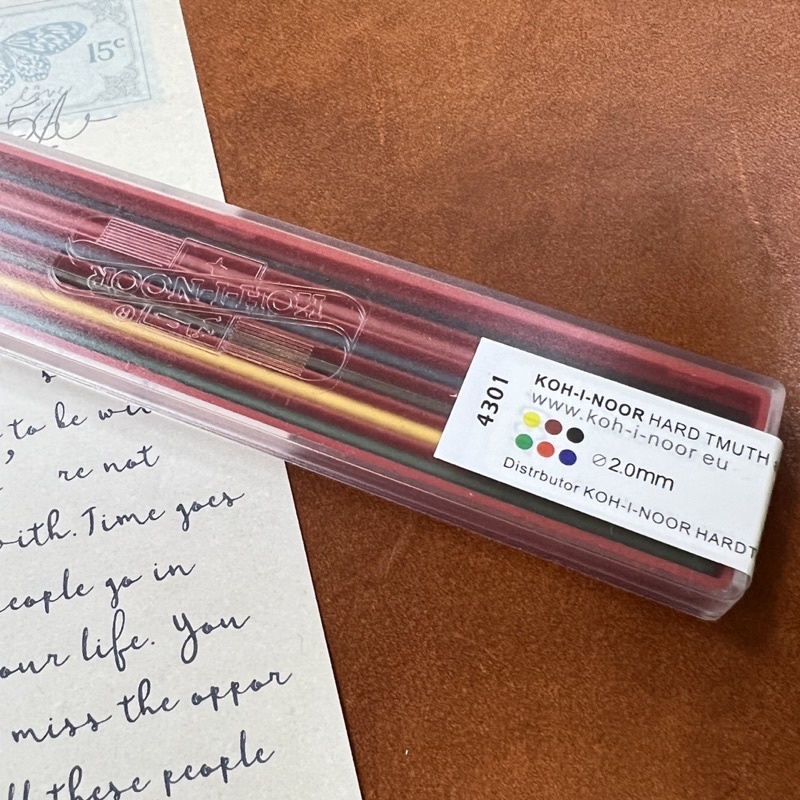 15c
love
KOH-I-NOOR
®
4301
KOH-I-NOOR HARD TMUTH
www.koh-i-noor eu
⌀2.0mm
Distrbutor KOH-I-NOOR HARDT
to be
re not
with. Time goes
people go in
our life. You
miss the oppor
these people